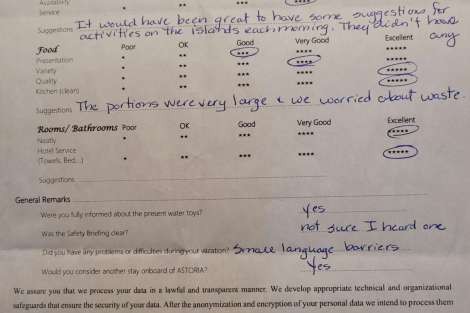 Availability * ** *** ****
Service
Suggestions It would have been great to have some suggestions for
activities on the islands each morning. They didn't have
any
Food Poor OK Good Very Good Excellent
Presentation * ** *** **** *****
Variety * ** *** **** *****
Quality * ** *** **** *****
Kitchen (clean) * ** *** **** *****
Suggestions The portions were very large & we worried about waste.
Rooms/ Bathrooms Poor OK Good Very Good Excellent
Neatly * ** *** **** *****
Hotel Service
(Towels, Bed,...) * ** *** **** *****
Suggestions
General Remarks
Were you fully informed about the present water toys? Yes
Was the Safety Briefing clear? not sure I heard one
Did you have any problems or difficulties during your vacation? Small language barriers
Would you consider another stay onboard of ASTORIA? Yes
We assure you that we process your data in a lawful and transparent manner. We develop appropriate technical and organizational
safeguards that ensure the security of your data. After the anonymization and encryption of your personal data we intend to process them